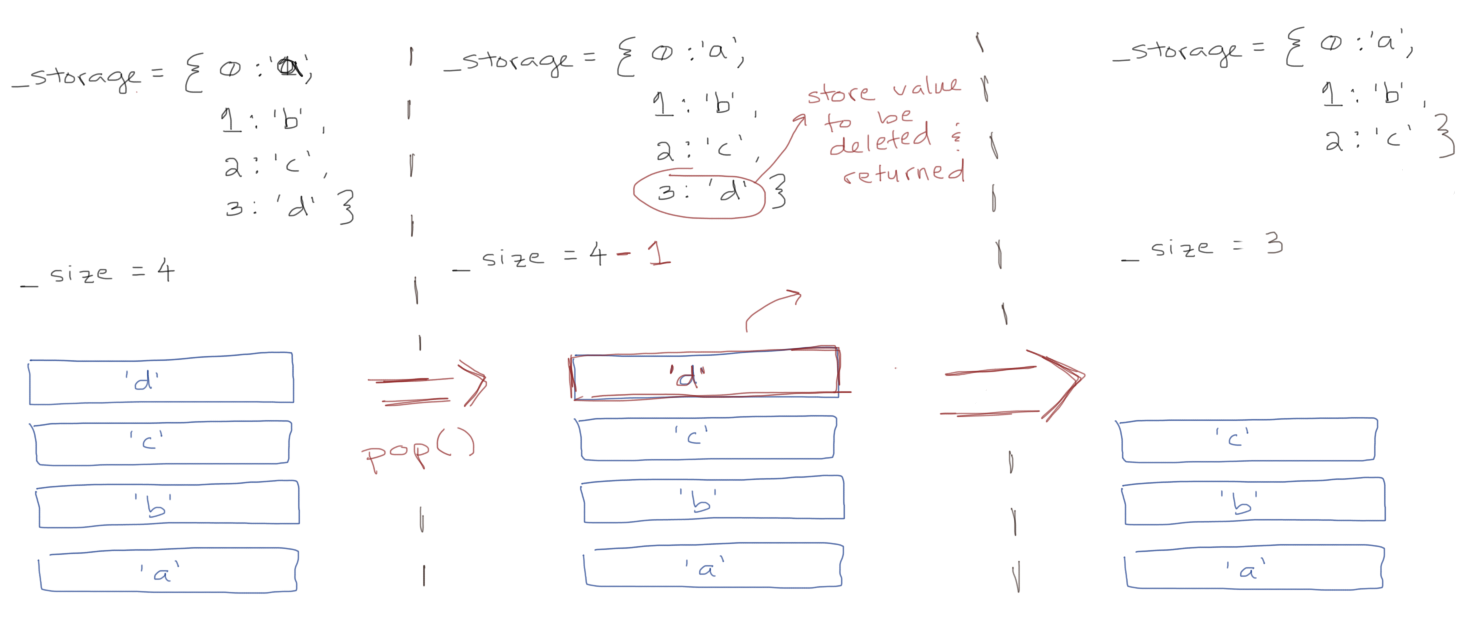 _storage = { 0 : 'a',
1 : 'b',
2 : 'c',
3 : 'd' }
_size = 4
'd'
'c'
'b'
'a'
pop()
_storage = { 0 : 'a',
1 : 'b',
2 : 'c',
3 : 'd' }
store value
to be
deleted &
returned
_size = 4 - 1
'd'
'c'
'b'
'a'
_storage = { 0 : 'a',
1 : 'b',
2 : 'c' }
_size = 3
'c'
'b'
'a'